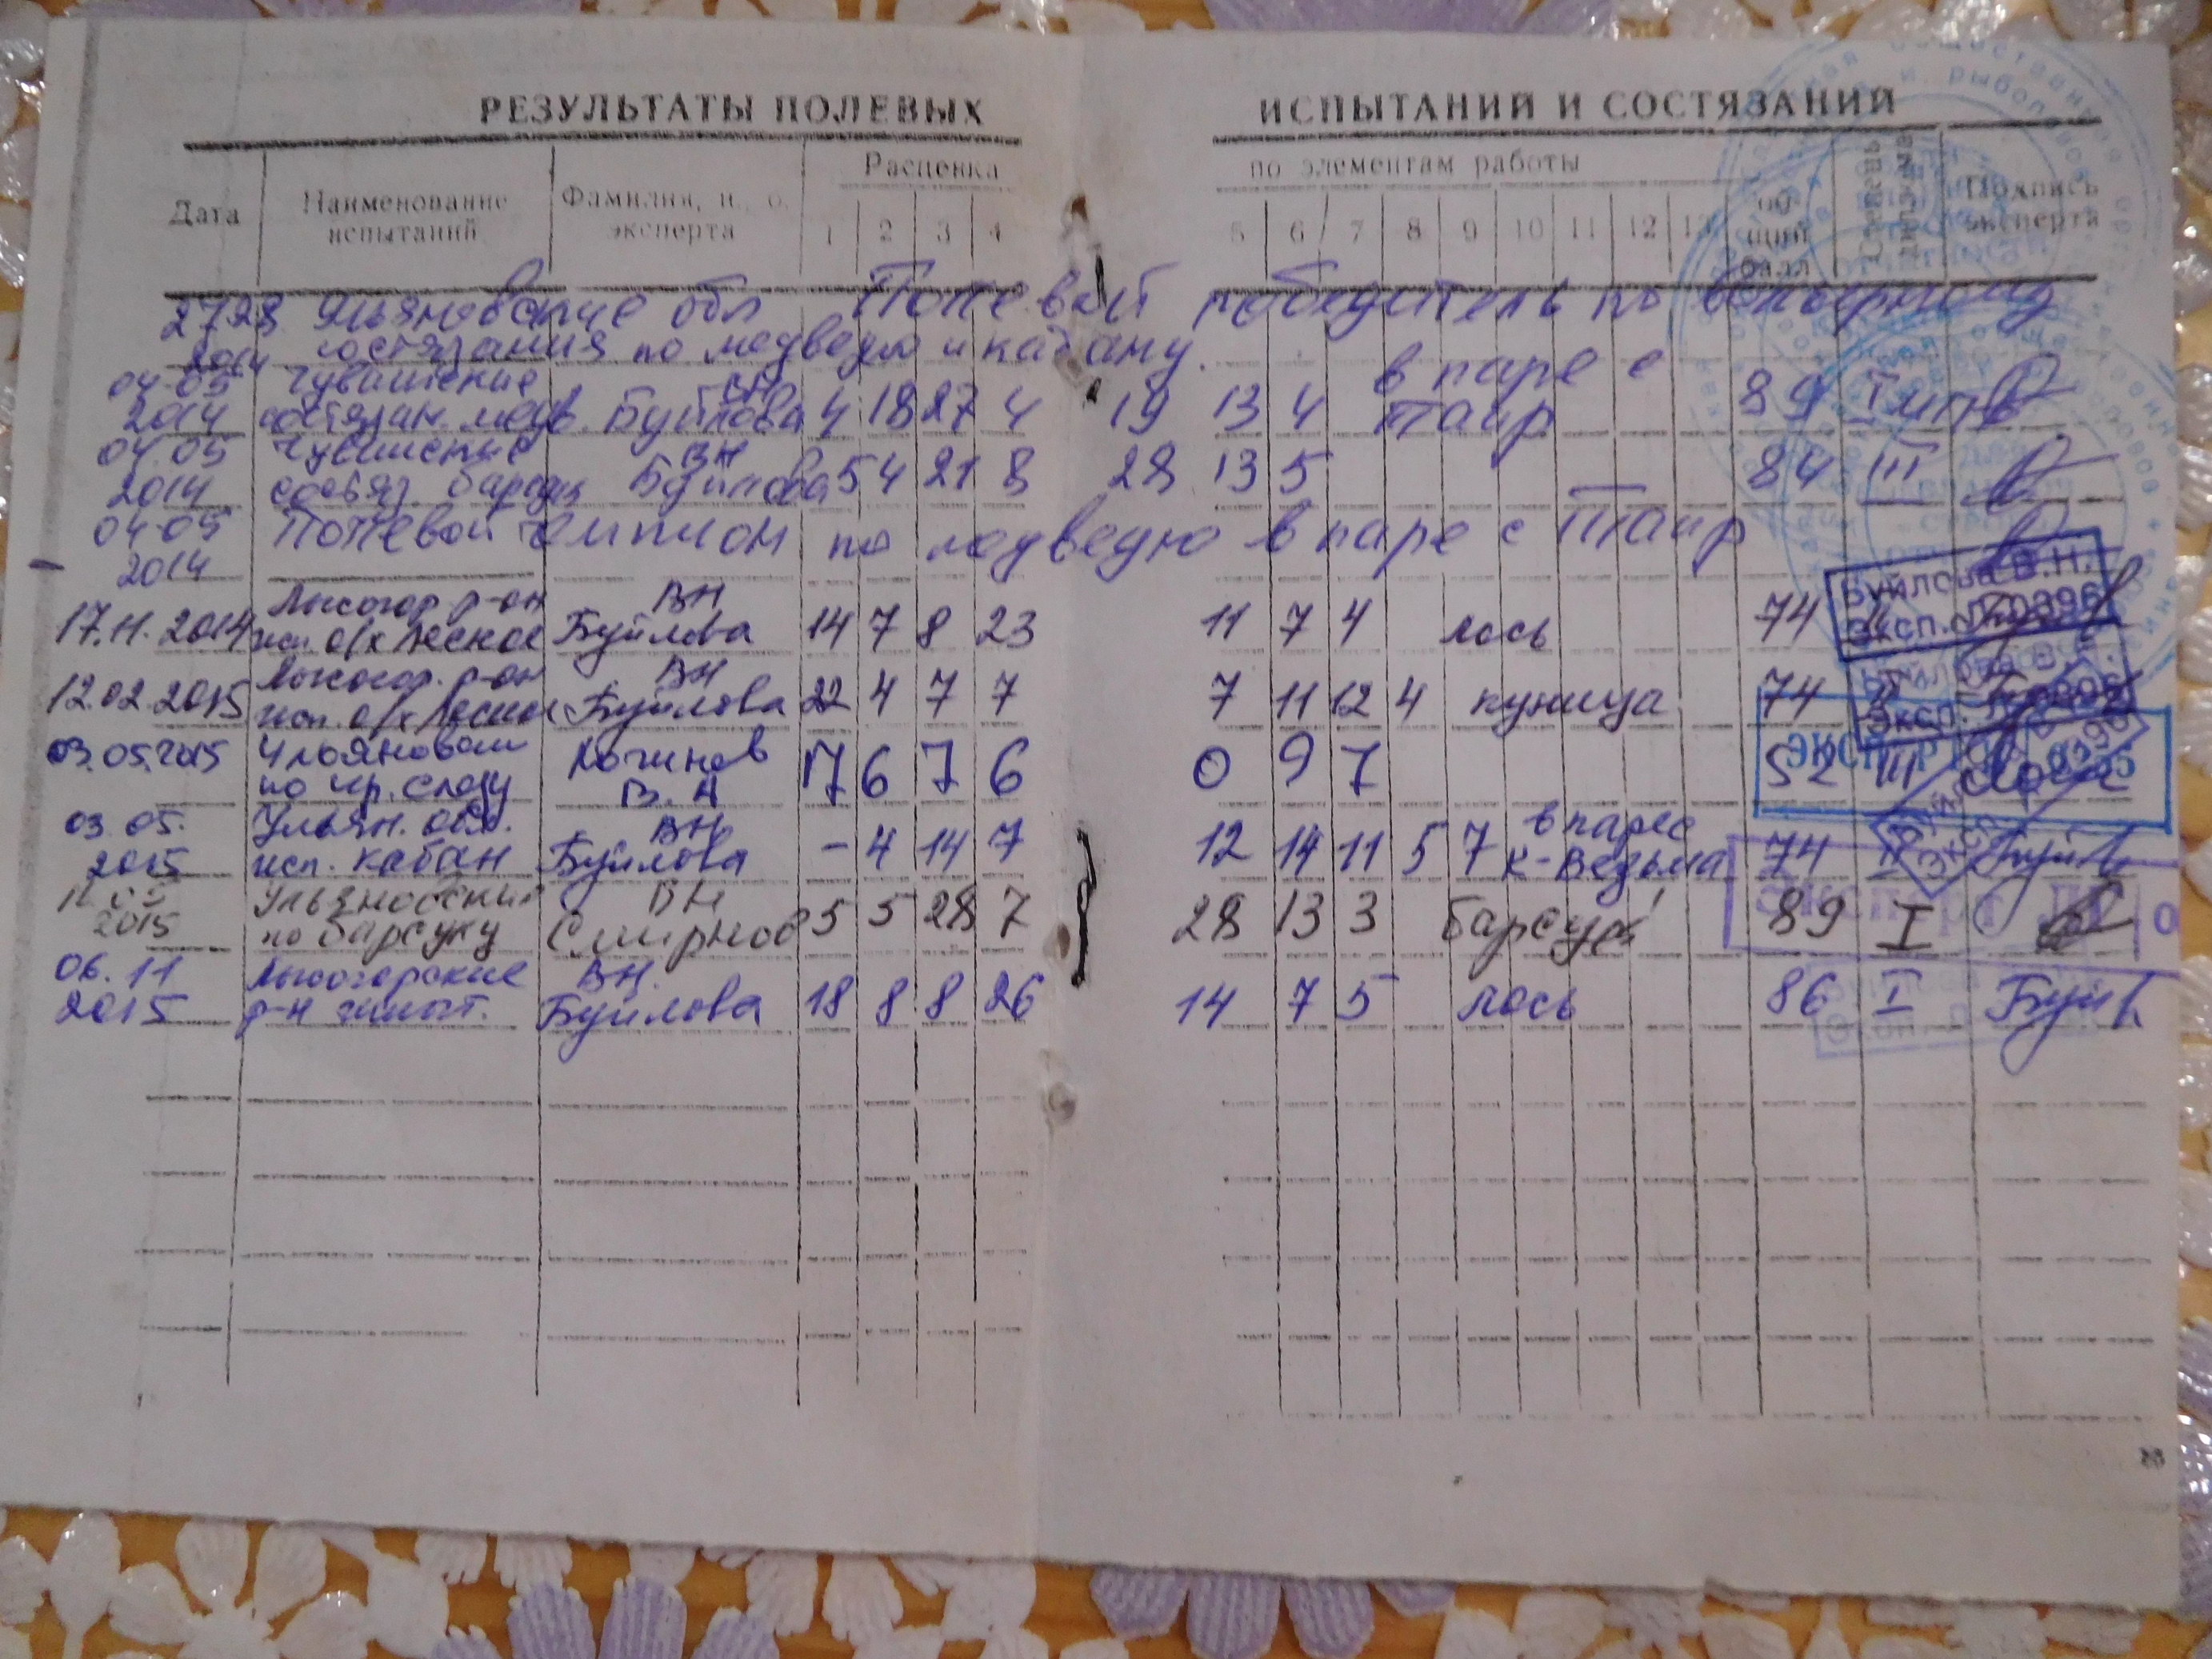 РЕЗУЛЬТАТЫ ПОЛЕВЫХ ИСПЫТАНИЙ И СОСТЯЗАНИЙ
Расценка по элементам работы
Дата Наименование испытаний Фамилия, и., о. эксперта 1 2 3 4 5 6 7 8 9 10 11 12 13 общий балл Степень диплома Подпись эксперта
Ульяновские обл Полевой победитель по
2014 состязания по медведю и кабану.
04.05 Чувашские ВН в паре с
2014 состязан. медв. Буйлова 4 18 27 4 19 13 4 Таир 89 I
04.05 Чувашские ВН
2014 состяз. барсук Буйлова 5 4 21 8 28 13 5 84 III
04.05 Полевой чемпион по медведю в паре с Таир
2014
Лысогор. р-он ВН
17.11.2014 исп. о/х Лесное Буйлова 14 7 8 23 11 7 4 лось 74
Лысогор. р-он ВН
12.02.2015 исп. о/х Лесное Буйлова 22 4 7 7 7 11 12 4 куница 74
03.05.2015
по кр. следу 17 6 7 6 0 9 7 52 III
03.05. Ульян. обл. ВН в паре с
2015 исп. кабан Буйлова - 4 14 7 12 14 11 5 7 К-Ведьма 74
Ульяновские ВН
2015 по барсуку Смирнов 5 5 28 7 28 13 3 барсук 89 I
06.11 Лысогорские ВН.
2015 р-н Буйлова 18 8 8 26 14 7 5 лось 86 I
Буйлова В.Н.
Эксп.